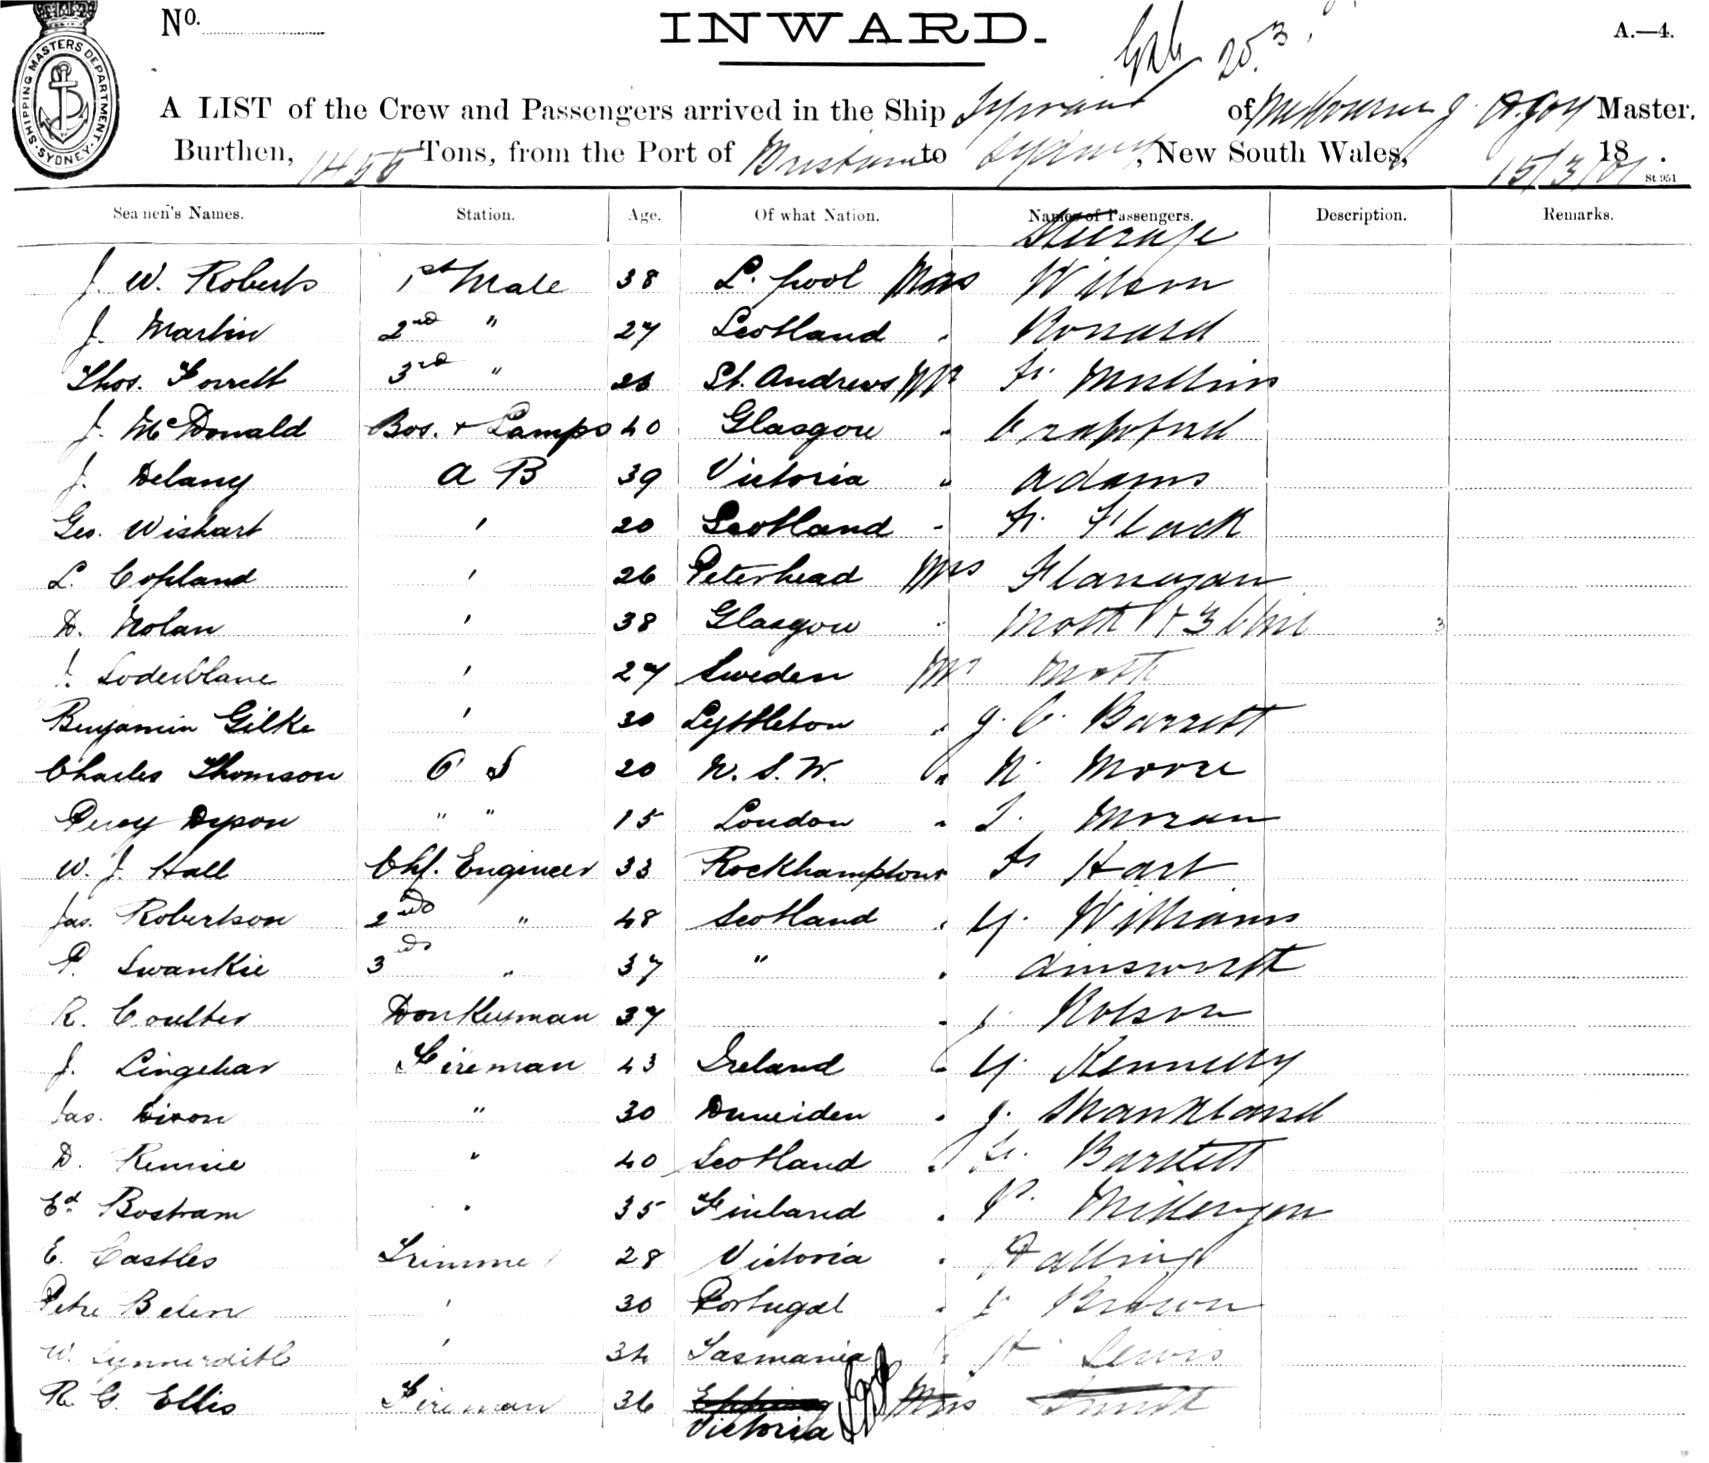 SHIPPING MASTERS DEPARTMENT. SYDNEY.
No.
INWARD.
20.3
A.—4.
A LIST of the Crew and Passengers arrived in the Ship Tyrian of Melbourne J. Master.
Burthen, 1455 Tons, from the Port of Brisbane to Sydney, New South Wales, 15/3/01 18 .
St 951
Seamen's Names. Station. Age. Of what Nation. Names of Passengers. Description. Remarks.
Steerage
J. W. Roberts 1st Mate 38 L. pool Mrs Wilson
J. Martin 2nd " 27 Scotland " Ronard
Thos. Forrett 3rd " 26 St. Andrews Mr Fr. Mullins
J. McDonald Bos. + Lamps 40 Glasgow " Crawford
J. Delany A B 39 Victoria " Adams
Geo. Wishart ' 20 Scotland " Fr. Flack
L. Copland ' 26 Peterhead Mrs Flanagan
D. Nolan ' 38 Glasgow " Moth + 3 Chil 3
J. Soderblane ' 27 Sweden Mr Moth
Benjamin Gilke ' 30 Lyttleton " J. C. Barrett
Charles Thomson O S 20 N. S. W. " N. Moore
Percy Dyson " " 15 London " T. Moran
W. J. Hall Chf. Engineer 33 Rockhampton " Fr Hart
Jas. Robertson 2nd " 48 Scotland " Y. Williams
P. Swankie 3rd " 37 " " Ainsworth
R. Coulter Donkeyman 37 " J. Robson
J. Lingehar Fireman 43 Ireland " Y. Kennedy
Jas. Dixon " 30 Duneiden " J. Shankland
D. Rennie " 40 Scotland " Fr. Bartlett
Ed. Bostram " 35 Finland " P.
E. Castles Trimmer 28 Victoria "
Petre Belen ' 30 Portugal " J Brown
W. ' 34 Tasmania " H Lewis
R. G. Ellis Fireman 36 Epping Mrs Smith
Victoria